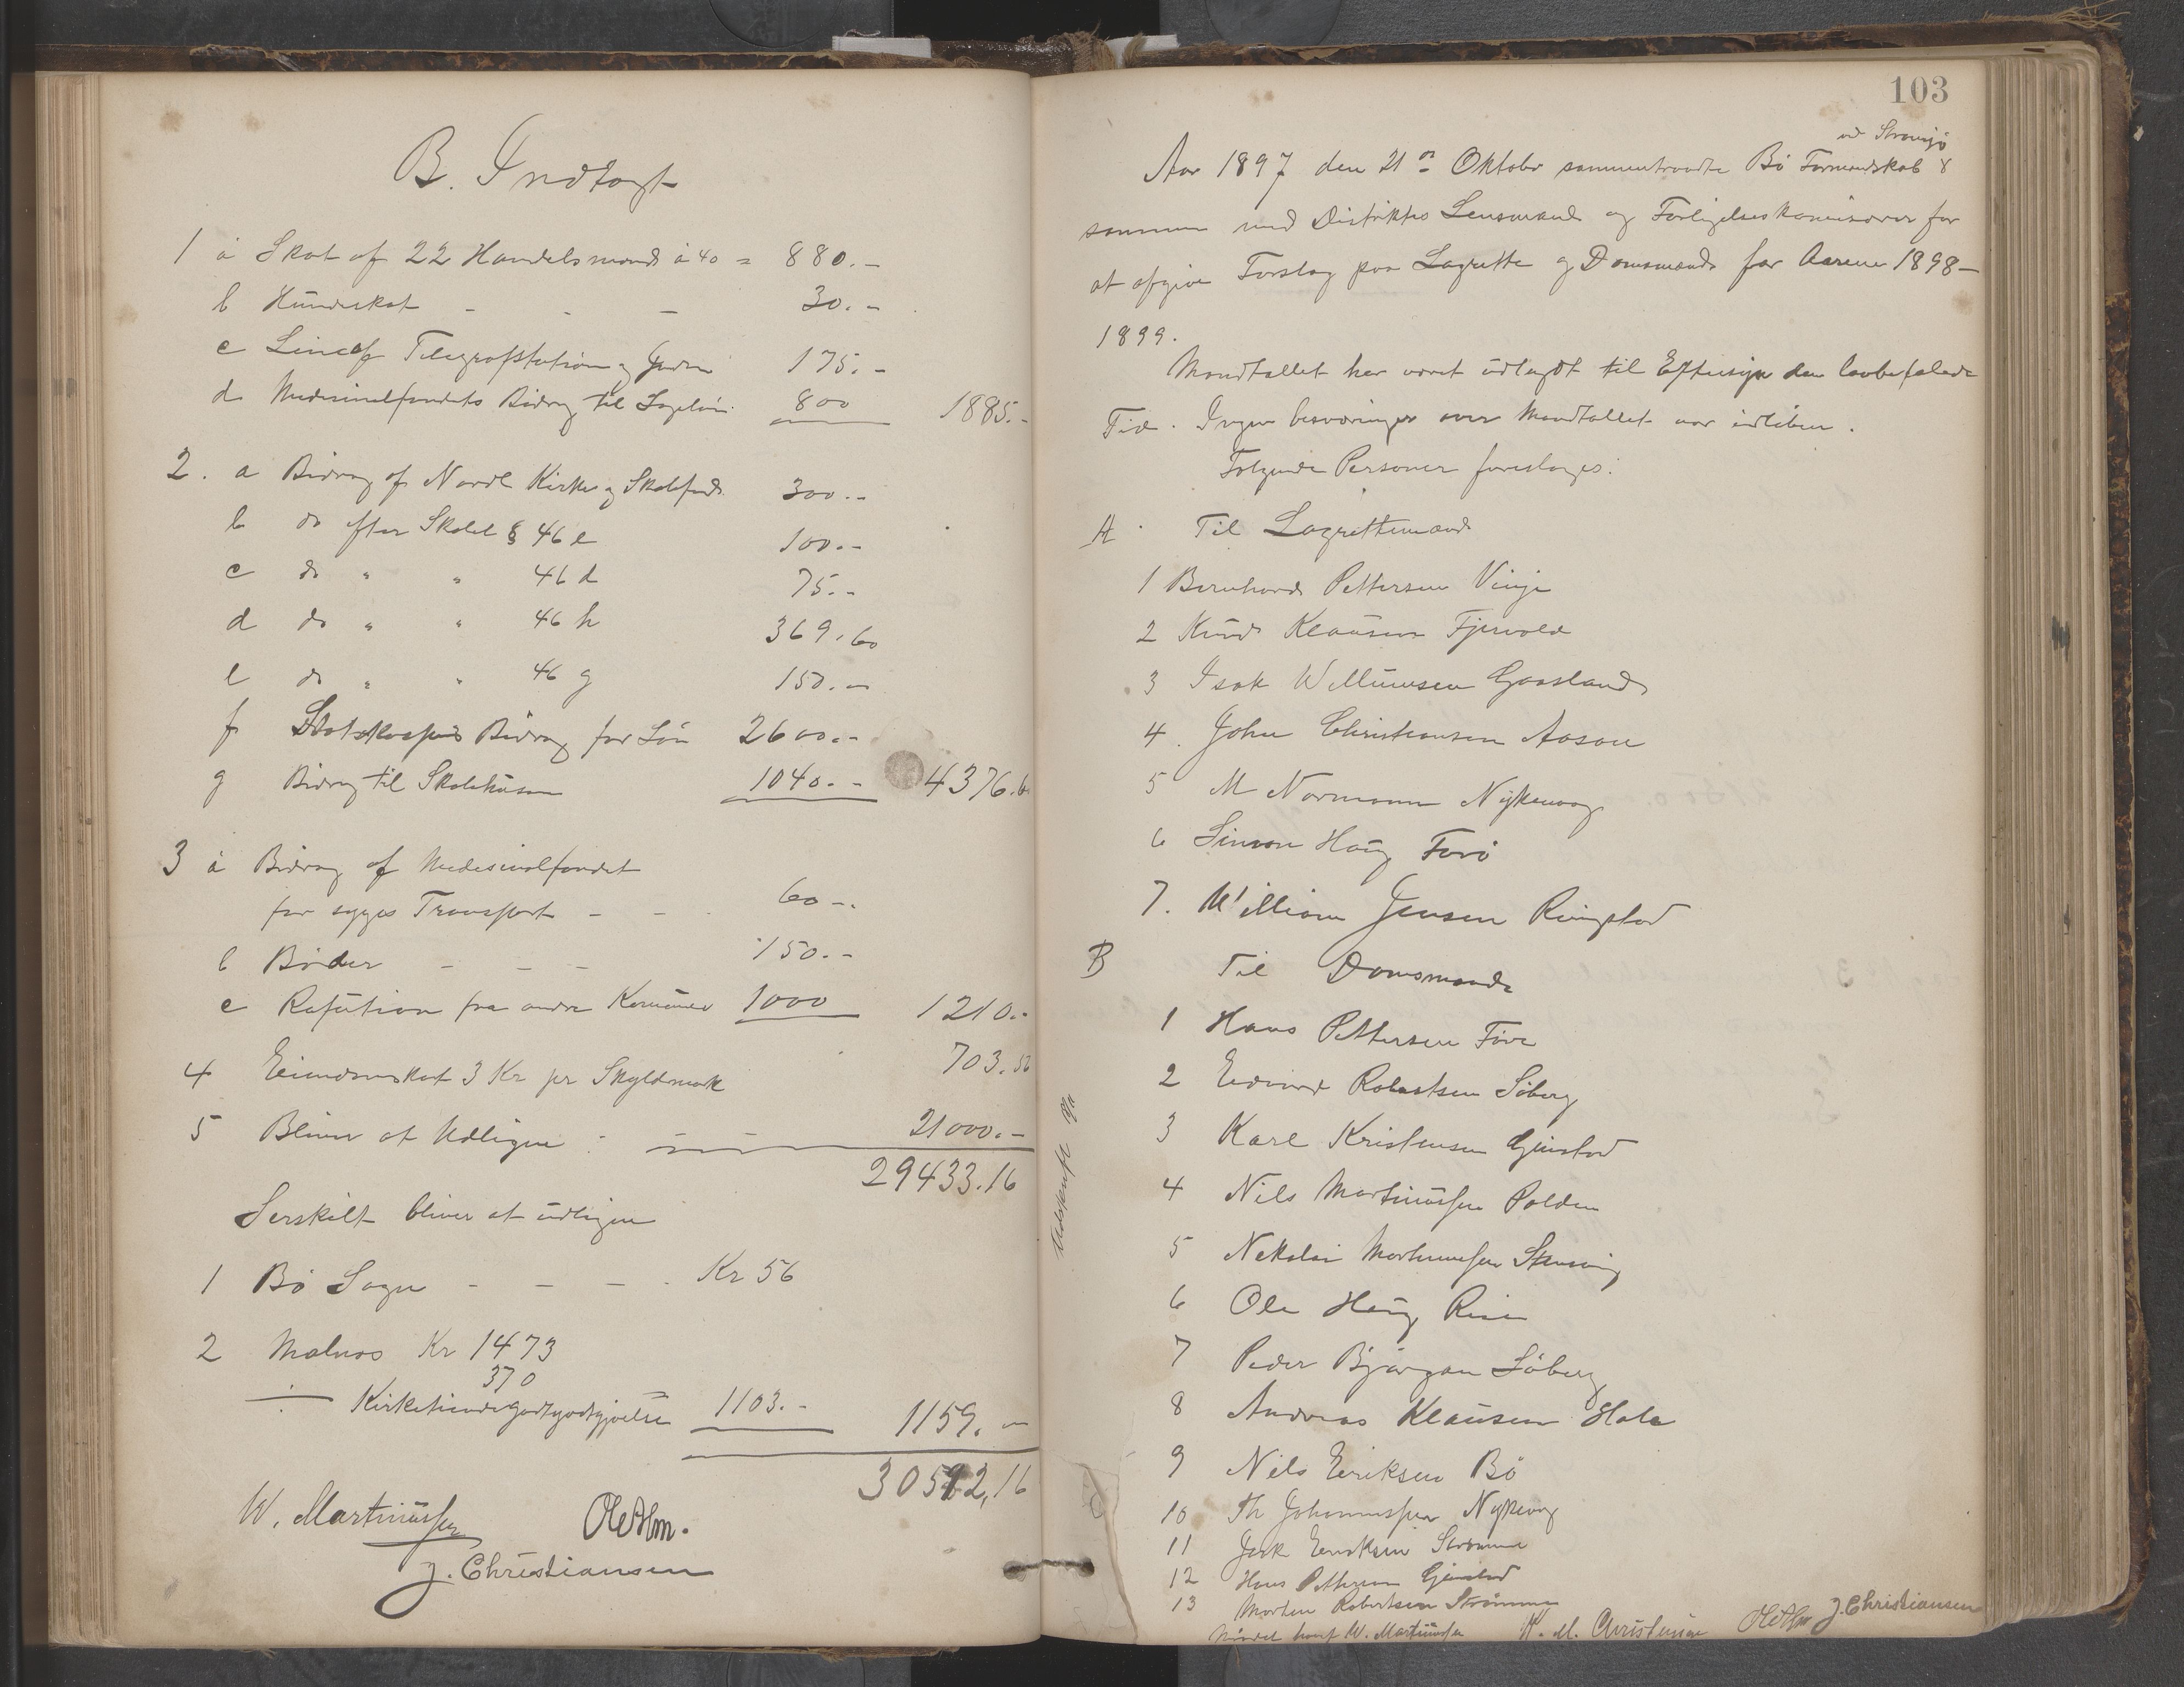 B. Indtægt
1 a Skat af 22 Handelsmænd à 40 = 880.-
b Hundeskat - - - 30.-
c Leie af Telegrafstation 175.-
d Medisinalfondets Bidrag til Lægeløn 800 1885.-
2. a Bidrag af Nordl Kirke og Skolefond 300.-
b do efter Skolel § 46 e 100.-
c do " " 46 d 75.-
d do " " 46 h 369.60
e do " " 46 g 150.-
f Statskassens Bidrag for Løn 2600.-
g Bidrag til Skolehuse 1040.- 4376.6
3 a Bidrag af Medesinalfondet
for syges Transport - - 60-.
b Bøder - - - 150.-
c Refution fra andre Komuner 1000 1210.-
4 Eiendomskat 3 Kr pr Skyldmark 703.56
5 Bliver at Udligne : 21000.-
29433.16
Serskilt bliver at udligne
1 Bø Sogn - - - Kr 56
2 Malnes Kr 1473
370
÷ Kirketiende 1103.- 1159.-
30592,16
W. Martinussen OleAlm.
J. Christiansen
103
ved Straumsjø
Aar 1897 den 21de Oktober sammentraadte Bø Formandskab
sammen med Distriktes Lensmand og Forligelseskomisærer for
at afgive Forslag paa Lagrette og Domsmænd for Aarene 1898-
1899.
Mandtallet har været udlagdt til Eftersyn den lovbefalede
Tid. Ingen besværinger over Mandtallet var indløben.
Følgende Personer foreslaaes:
A. Til Lagrettemænd
1 Bernhard Pettersen Vinje
2 Knud Klausen Fjærvold
3 Isak Willumsen Gaasland
4. John Christiansen Aasan
5 M Normann Nykvaag
6 Simon Haug Førø
7. William Jensen Ringstad
B Til Domsmænd
1 Hans Pettersen Føre
2 Edvard Robertsen Søberg
3 Karl Kristensen Guustad
4 Nils Martinussen Polden
5 Nekolai Mortensen
6 Ole Haug Risen
7 Peder Bjørgan Søberg
8 Andreas Klausen Hola
9 Nils Eriksen Bø
10 Th Johannessen Nykvaag
11 Eriksen Strømme
12 Hans Pettersen
13 Morten Robertsen Strømme
W. Martinussen K. M. Christensen OleAlm J. Christiansen
Udskrift